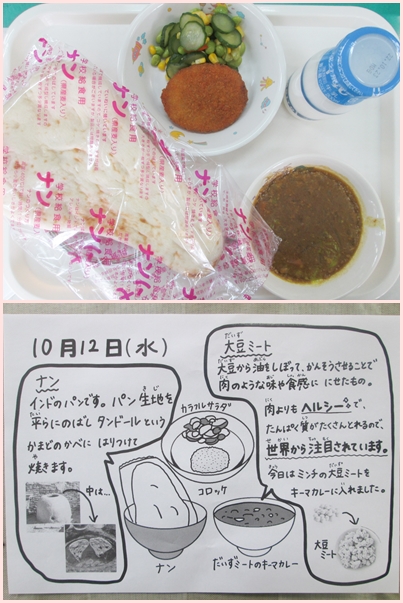 学校給食用
ナン
学校給食用
ナン
学校給食用
ナン
学校給食用
ナン
10月12日(水)
ナン
インドのパンです。パン生地を
きじ
平らにのばし タンドールという
たい
かまどのかべに はりつけて
焼きます。
や
中は…
なか
だいず
大豆ミート
大豆から油をしぼって、かんそうさせることで
肉のような味や食感に にせたもの。
肉よりも ヘルシーで、
たんぱく質がたくさんとれるので、
世界から注目されています。
今日はミンチの大豆ミートを
キーマカレーに入れました。
大豆
ミート
カラフルサラダ
コロッケ
ナン
だいずミートのキーマカレー